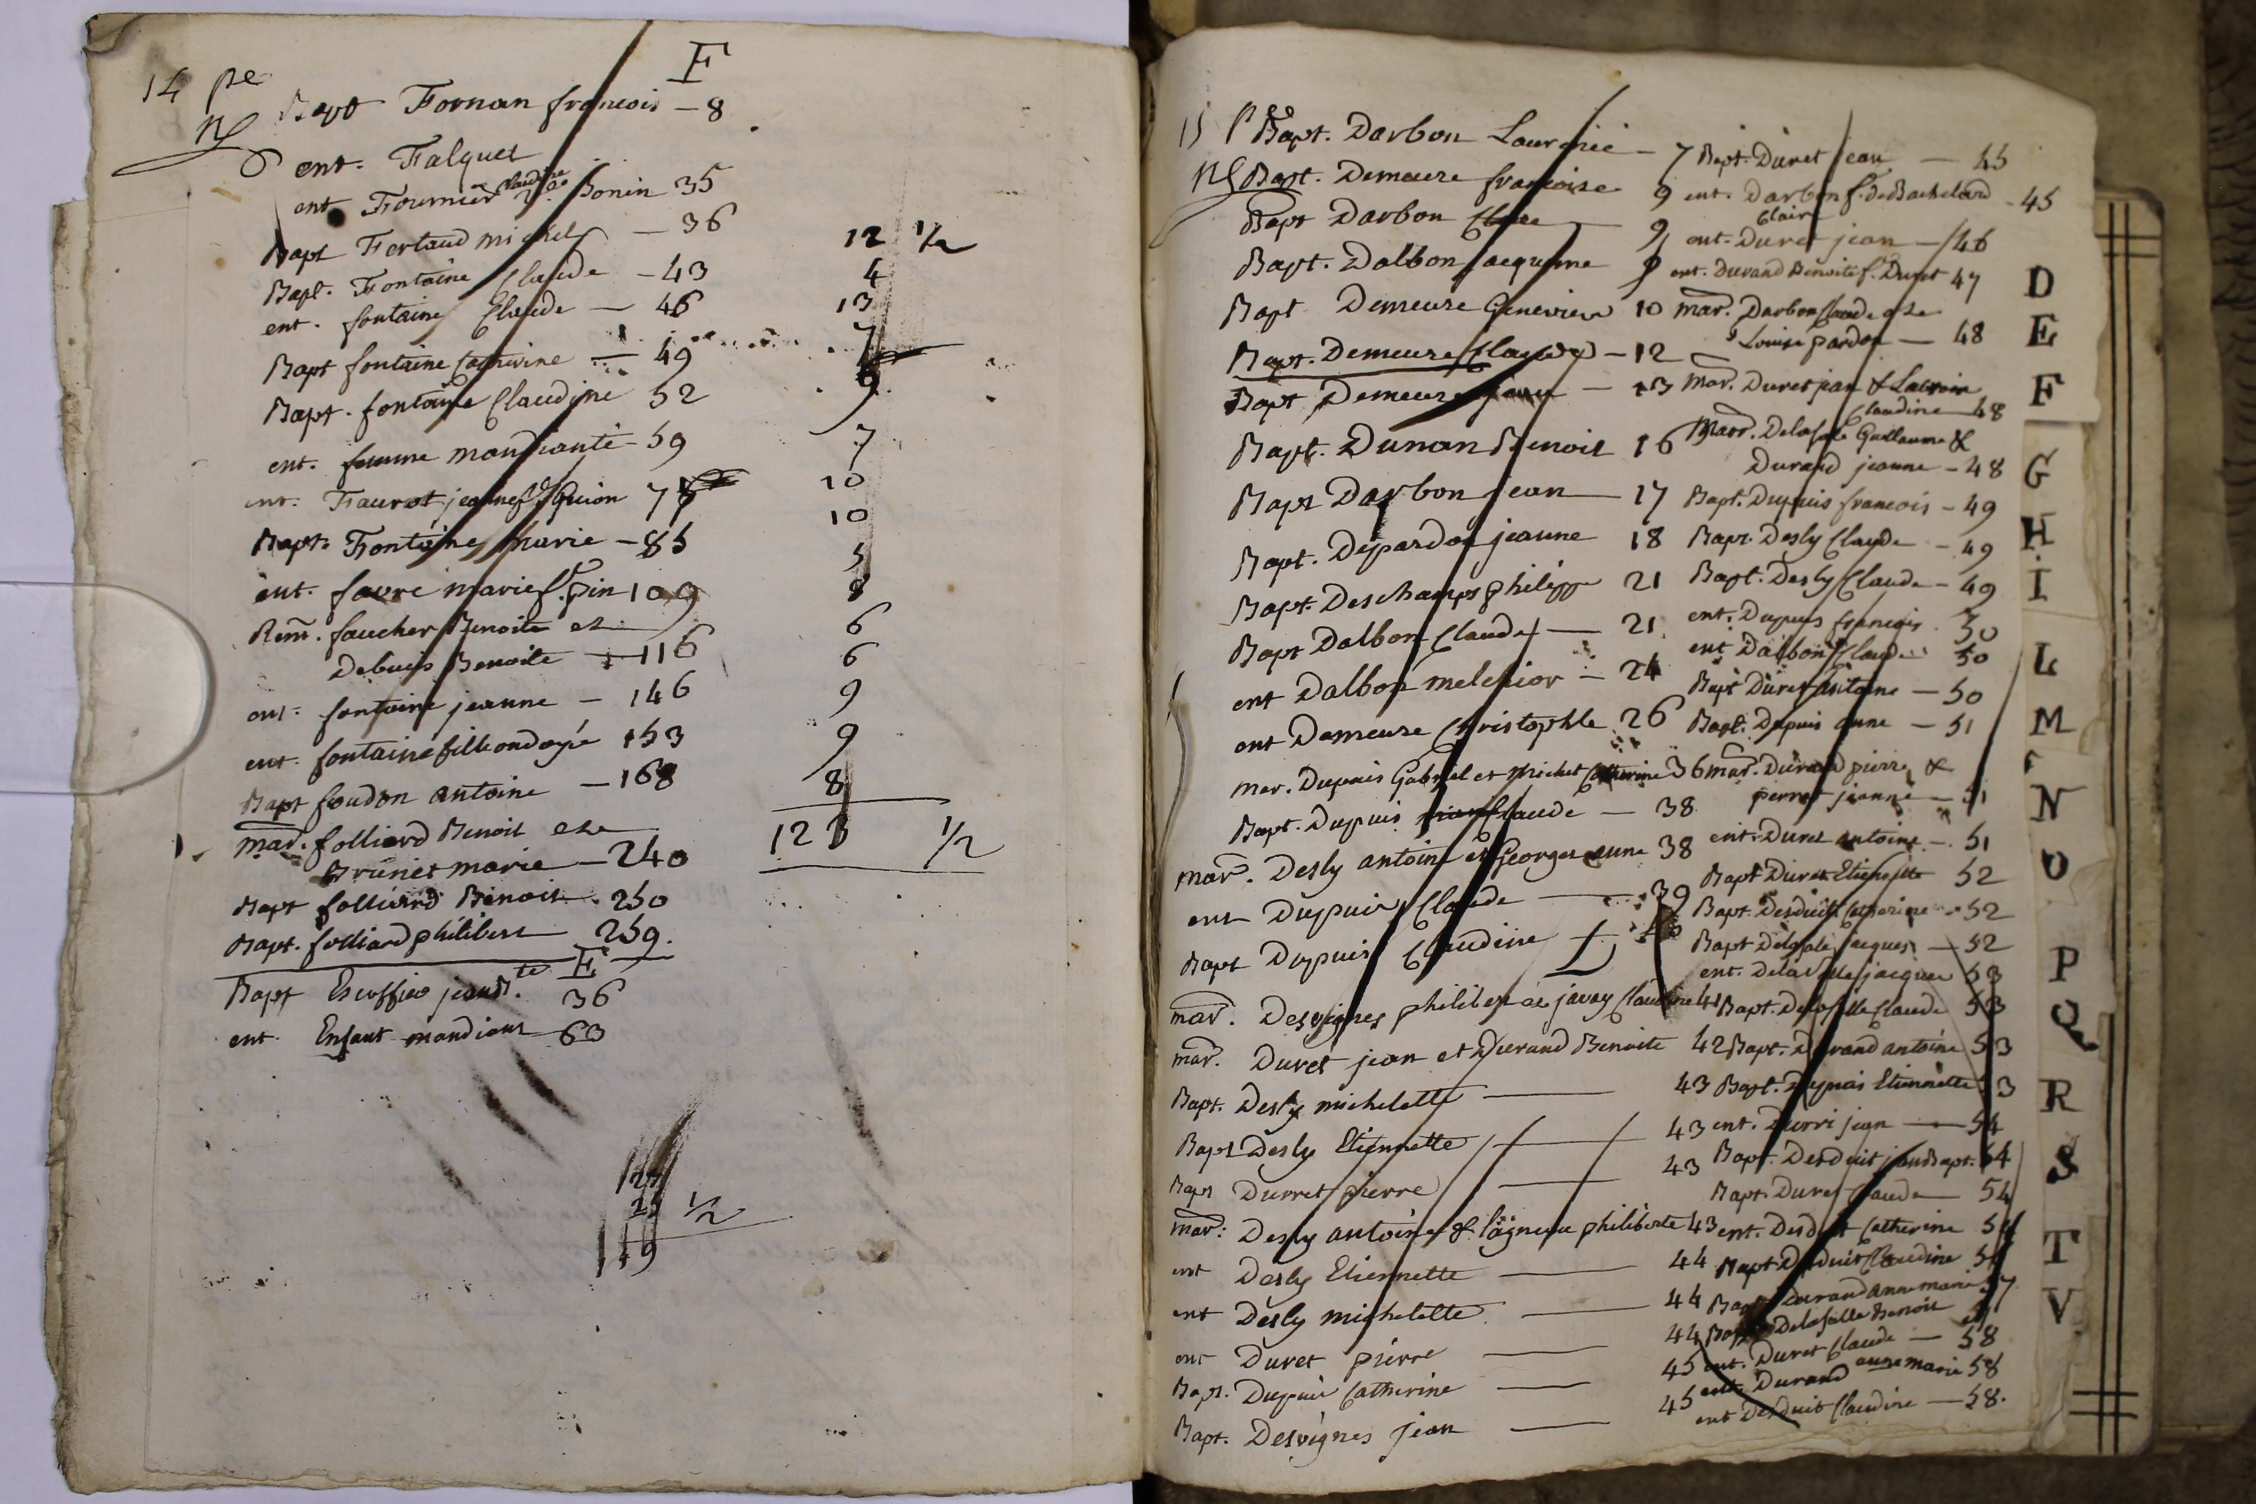 14 pe
F
Bapt Fornan francois - 8
ent. Falquet
ent Fournier Claudine Bonin 35
Bapt Fertaud michel - 36
Bapt. Fontaine Claude - 43
ent. fontaine Claude - 46
Bapt fontaine Catherine - 49
Bapt. fontaine Claudine 52
ent. femme mandiante - 59
ent. Faurot jeanne f. Guion
Bapt. Fontaine Marie - 85
ent. favre marie f. pin 109
Rem. faucher Benoite et
Debuis Benoite - 116
ent. fontaine jeanne - 146
ent. fontaine fille ondoyée 153
Bapt foudon antoine - 168
mar. folliard Benoit et
Brunet marie - 240
Bapt folliard Benoit. 250
Bapt. folliard philibert 259.
E
Bapt Escoffier jean B.te 36
ent. Enfant mandiant - 63
12 1/2
4
13
7
9
7
10
10
5
8
6
6
9
9
8
123 1/2
25 1/2
149
15 p
Bapt. Darbon Laurence - 7
Bapt. Demeure francoise 9
Bapt Darbon Claire - 9
Bapt. Dalbon jacqueme 9
Bapt Demeure Genevieve 10
Bapt. Demeure Claude - 12
Bapt Demeure jean - 13
Bapt. Dunan Benoit 16
Bapt Darbon jean - 17
Bapt. Depardon jeanne 18
Bapt. Deschamps philippe 21
Bapt Dalbon Claude - 21
ent Dalbon melchior - 24
ent Demeure Christophle 26
mar. Dupuis Gabriel et Michet Catherine 36
Bapt. Dupuis Claude - 38
mar. Desly antoine et Georges anne 38
ent Dupuis Claude - 39
Bapt Dupuis Claudine
mar. Desvignes philibert et javey Claudine 41
mar. Duret jean et Durand Benoite 42
Bapt. Desly michelette 43
Bapt Desly Etiennette 43
Bapt Durret pierre 43
mar. Desly antoine & lagneau philiberte 43
ent Desly Etiennette 44
ent Desly michelette 44
ent Duret pierre 44
Bapt. Dupuis Catherine 45
Bapt. Desvignes jean 45
Bapt. Duret jean - 45
ent. Darbon f. de Bachelard - 45
Claire
ent. Duret jean - 46
ent. Durand Benoite f. Duret 47
mar. Darbon Claude et
Louise pardon - 48
mar. Duret jean & Lacroix
Claudine 48
Marr. Delasalle Guillaume &
Durand jeanne - 48
Bapt. Dupuis francois - 49
Bapt. Desly Claude - 49
Bapt. Desly Claude - 49
ent. Dupuis francois. 50
ent Dalbon Claude. 50
Bapt Duret antoine - 50
Bapt. Dupuis anne - 51
mar. Durand pierre &
perret jeanne - 51
ent. Duret antoine - 51
Bapt Duret Etiennette 52
Bapt. Desduit Catherine - 52
Bapt Delasale jacques - 52
ent. Delasalle jacques 53
Bapt. Delasalle Claude 53
Bapt. Durand antoine 53
Bapt. Dupuis Etiennette 53
ent. Durri jean - 54
Bapt. Desduit jean Bapt. 54
Bapt. Duret Claude - 54
ent. Desduit Catherine 54
Bapt Desduit Claudine
Bapt Durand anne marie 57
Bapt Delasalle Benoit
ent. Duret Claude - 58
ent. Durand anne marie 58
ent Desduit Claudine - 58.
D
E
F
G
H
I
L
M
N
O
P
Q
R
S
T
V